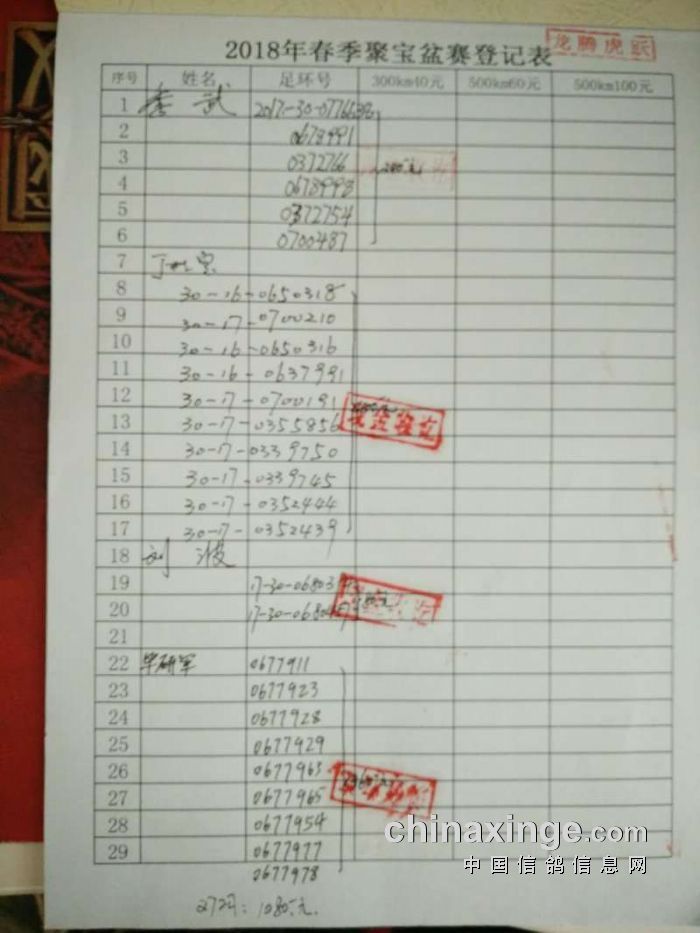 龙腾虎跃
2018年春季聚宝盆赛登记表
序号 姓名 足环号 300km40元 500km60元 500km100元
1 李武 2017-30-0776638
2 0678991
3 0372766
4 0678998
5 0372754
6 0700487
7 丁
8 30-16-0650318
9 30-17-0700210
10 30-16-0650316
11 30-16-0637991
12 30-17-0700191
13 30-17-0355856
14 30-17-0339750
15 30-17-0339745
16 30-17-0352444
17 30-17-0352439
18 刘波
19 17-30-06803
20 17-30-0680
21
22 毕研军 0677911
23 0677923
24 0677928
25 0677929
26 0677963
27 0677965
28 0677954
29 0677977
0677978
27羽: 1080元.
chinaxinge.com
中国信鸽信息网